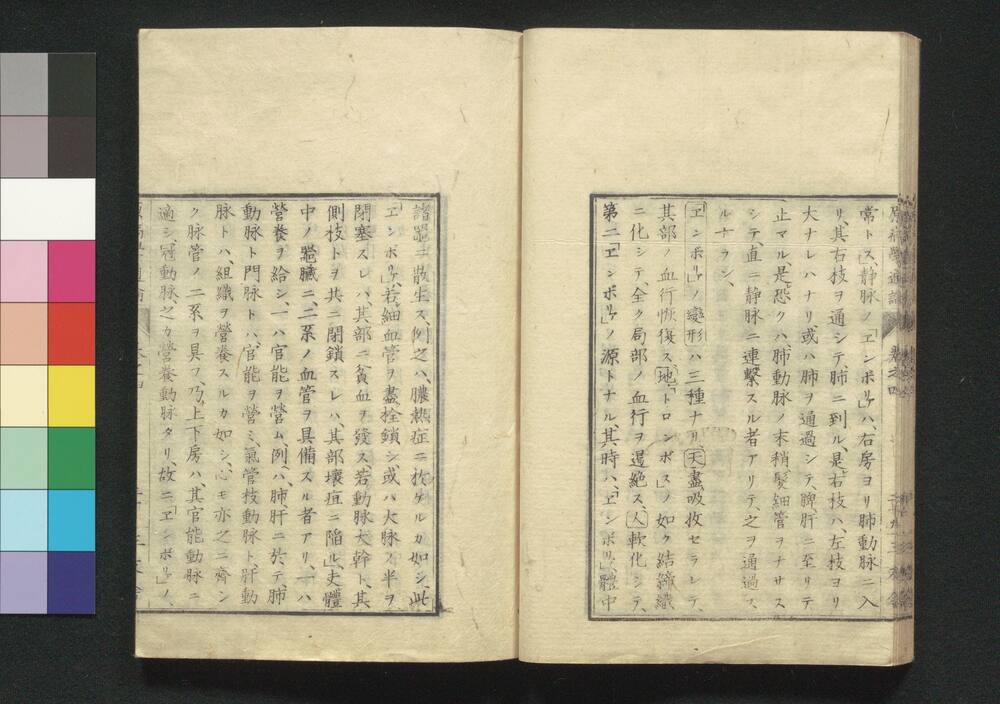 原病學通論 卷之四
常トス、静脉ノ「エンボリ」ハ、右房ヨリ肺動脉ニ入
リ、其右枝ヲ通シテ、肺ニ到ル、是右枝ハ、左枝ヨリ
大ナレハナリ或ハ肺ヲ通過シテ、脾、肝ニ至リテ
止マル、是恐クハ、肺動脉ノ末稍、髮細管ヲナサス
シテ、直ニ静脉ニ連繋スル者アリテ、之ヲ通過ス
ルナラン、
「エンボリ」ノ變形ハ三種ナリ、天盡吸收セラレテ、
其部ノ血行恢復ス、地「トロンボス」ノ如ク結締織
ニ化シテ、全ク局部ノ血行ヲ遏絶ス、人軟化シテ、
第二「エンボリ」ノ源トナル、其時ハ、「エンボリ」體中
諸器ニ散生ス、例之ハ、膿熱症ニ於ケルカ如シ、此
「エンボリ」、若細血管ヲ盡栓鎖シ或ハ大脉ノ半ヲ
閉塞スレハ、其部ニ貧血ヲ發ス若動脉大幹ト、其
側枝トヲ共ニ閉鎖スレハ、其部壞疽ニ陥ル、史體
中ノ器臓ニ、二系ノ血管ヲ具備スル者アリ、一ハ
營養ヲ給シ、一ハ官能ヲ營ム、例ヘハ、肺肝ニ於テ、肺
動脉ト門脉トハ、官能ヲ營ミ、氣管枝動脉ト、肝動
脉トハ、組織ヲ營養スルカ如シ、心モ亦之ニ齊シ
ク脉管ノ二系ヲ具フ、乃上下房ハ、其官能動脉ニ
適シ、冠動脉、之カ營養動脉タリ、故ニ「エンボリ」ノ、